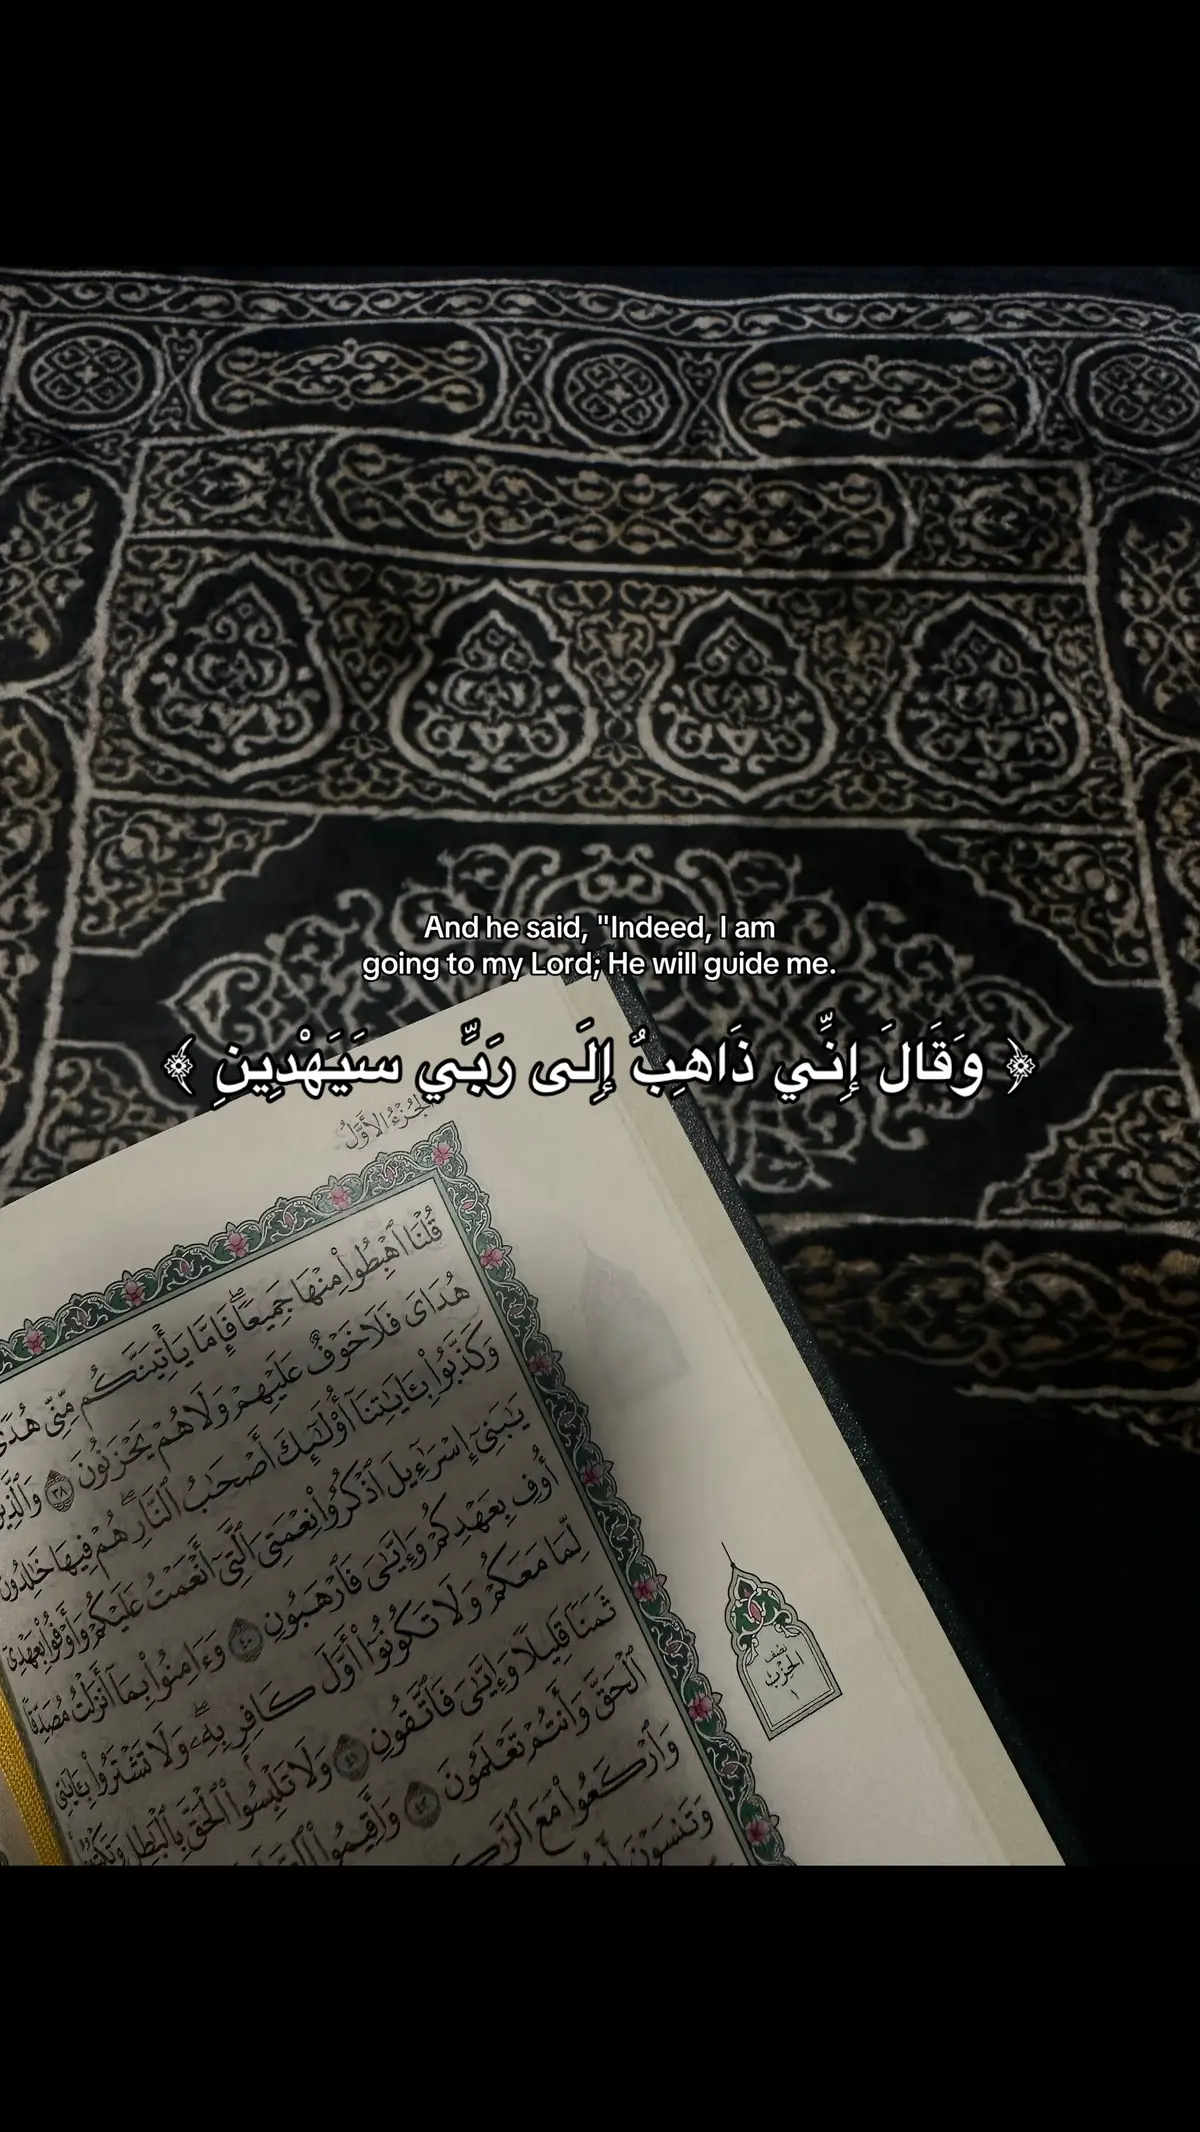 And he said, "Indeed, I am
going to my Lord; He will guide me.
﴿ وَقَالَ إِنِّي ذَاهِبٌ إِلَى رَبِّي سَيَهْدِينِ ﴾
الجُزْءُ الأَوَّلُ
قُلْنَا ٱهْبِطُوا۟ مِنْهَا جَمِيعًۭا ۖ فَإِمَّا يَأْتِيَنَّكُم مِّنِّى هُدًى
هُدَاىَ فَلَا خَوْفٌ عَلَيْهِمْ وَلَا هُمْ يَحْزَنُونَ ٣٨ وَٱلَّذِينَ
وَكَذَّبُوا۟ بِـَٔايَـٰتِنَآ أُو۟لَـٰٓئِكَ أَصْحَـٰبُ ٱلنَّارِ ۖ هُمْ فِيهَا خَـٰلِدُونَ
يَـٰبَنِىٓ إِسْرَٰٓءِيلَ ٱذْكُرُوا۟ نِعْمَتِىَ ٱلَّتِىٓ أَنْعَمْتُ عَلَيْكُمْ وَأَوْفُوا۟ بِعَهْدِىٓ
أُوفِ بِعَهْدِكُمْ وَإِيَّـٰىَ فَٱرْهَبُونِ ٤٠ وَءَامِنُوا۟ بِمَآ أَنزَلْتُ مُصَدِّقًۭا
لِّمَا مَعَكُمْ وَلَا تَكُونُوٓا۟ أَوَّلَ كَافِرٍۭ بِهِۦ ۖ وَلَا تَشْتَرُوا۟ بِـَٔايَـٰتِى
ثَمَنًۭا قَلِيلًۭا وَإِيَّـٰىَ فَٱتَّقُونِ ٤١ وَلَا تَلْبِسُوا۟ ٱلْحَقَّ بِٱلْبَـٰطِلِ
ٱلْحَقَّ وَأَنتُمْ تَعْلَمُونَ ٤٢ وَأَقِيمُوا۟
وَٱرْكَعُوا۟ مَعَ
وَتَنسَوْنَ
نِصْفُ
الحِزْبِ
١